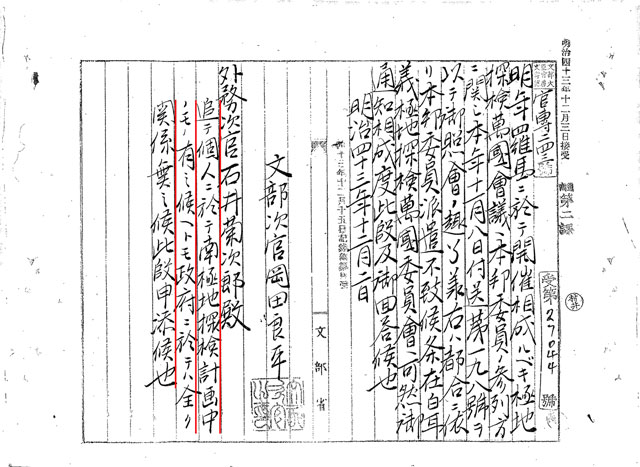 明治四十三年十二月三日接受
官專一四三號
第二課
受第27044號
明年四羅馬ニ於テ開催相成ルベキ極地
探検萬國會議ニ本邦委員ノ参列方
ニ関シ本年十一月八日付送第一九八號ヲ
以テ御照會ノ趣了承右ハ都合ニ依
リ本邦委員派遣不致候条在白耳
義極地探検萬國委員會ヘ可然御
通知相成度此段及御回答候也
明治四十三年十二月二日
文部次官岡田良平
外務次官石井菊次郎殿
追テ個人ニ於テ南極地探検計画中
ノモノ有之候ヘトモ政府ニ於テハ全ク
関係無之候此段申添候也
文部省